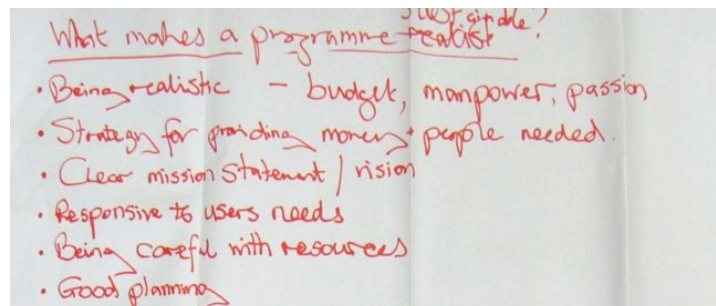 sustainable?
What makes a programme realist
• Being realistic – budget, manpower, passion
• Strategy for providing money + people needed.
• Clear mission statement / vision
• Responsive to users needs
• Being careful with resources
• Good planning